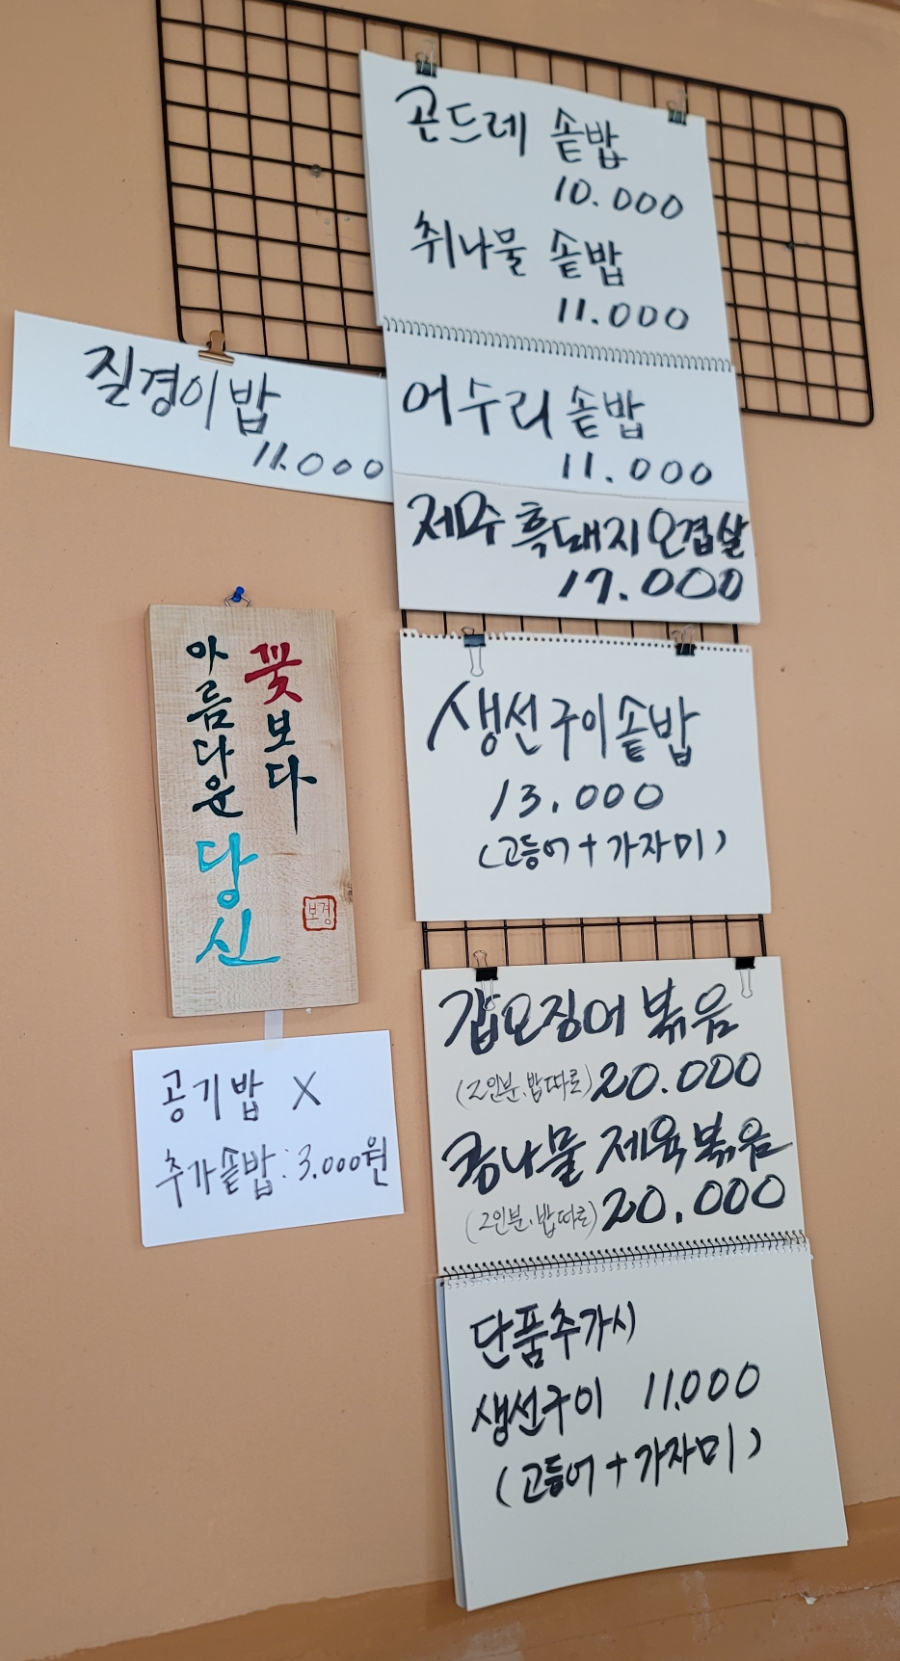 곤드레 솥밥
10.000
취나물 솥밥
11.000
어수리 솥밥
11.000
제주 흑돼지 오겹살
17.000
질경이밥
11.000
생선구이솥밥
13.000
(고등어+가자미)
꽃보다
아름다운
당신
보경
공기밥 X
추가솥밥:3.000원
갑오징어 볶음
(2인분.밥따로) 20.000
콩나물 제육볶음
(2인분.밥따로) 20.000
단품추가시
생선구이 11.000
(고등어+가자미)